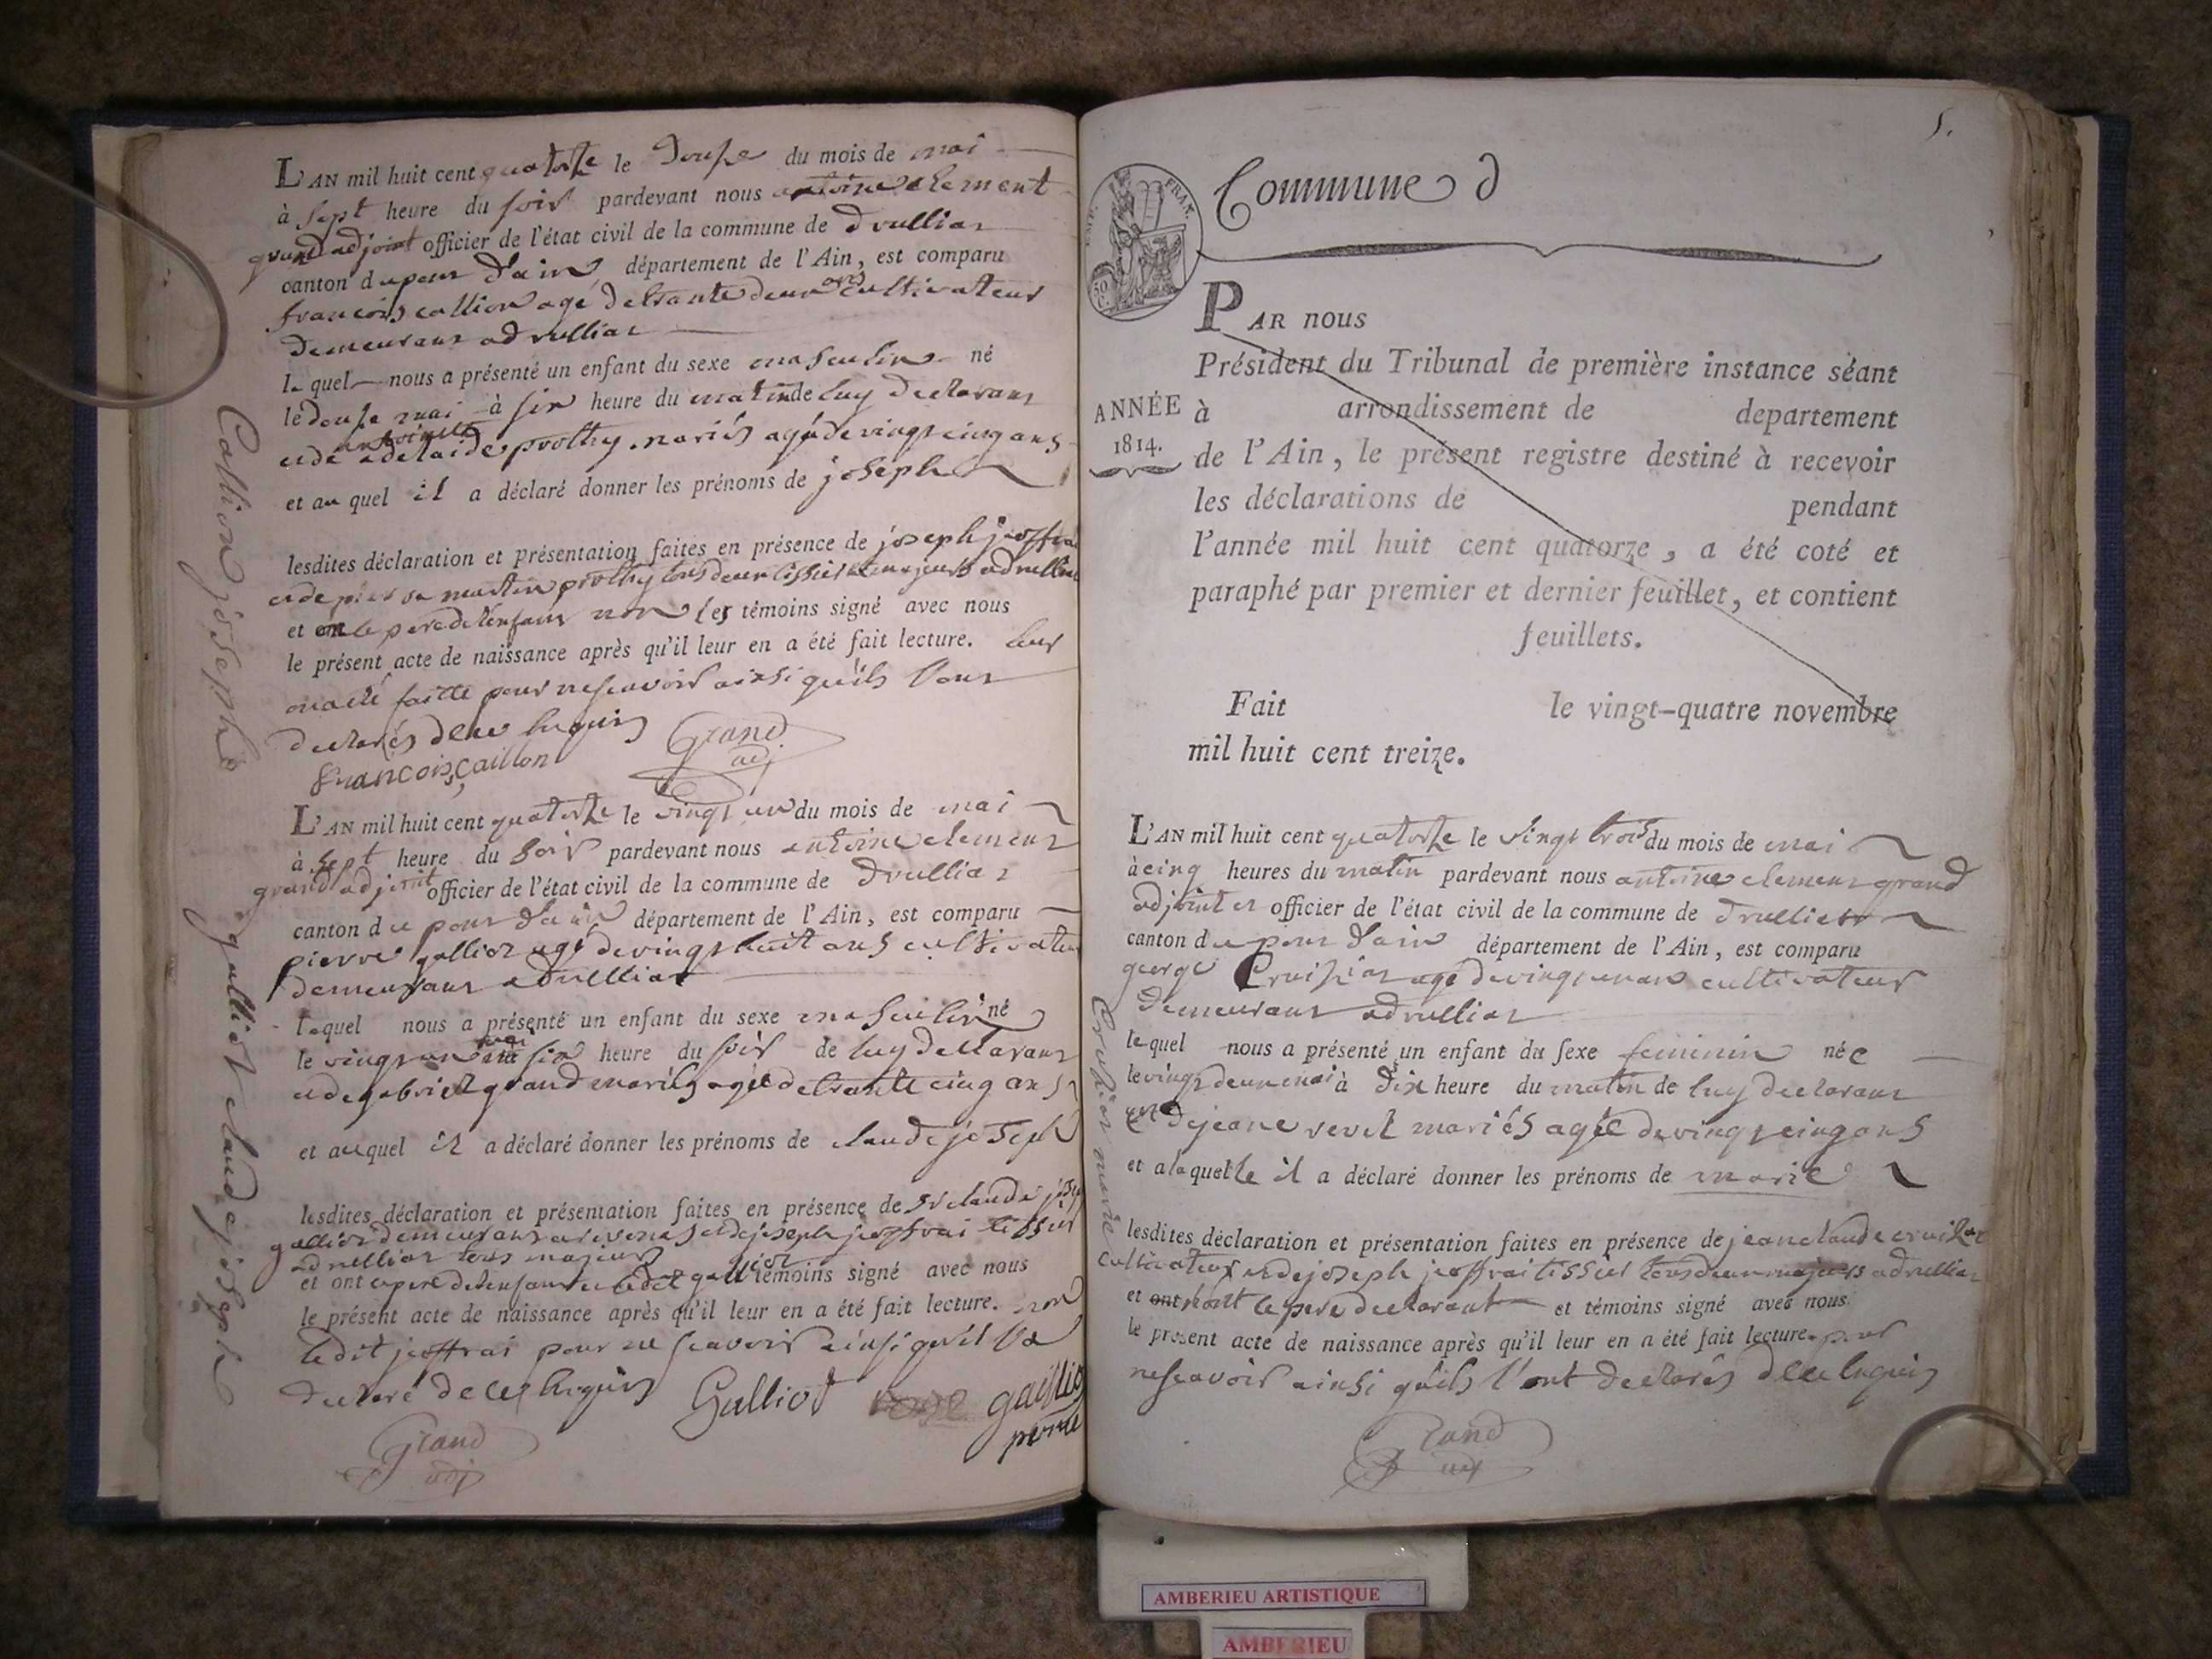 L'AN mil huit cent quatorze le Douse du mois de mai
à sept heure du soir pardevant nous antoine clement
grand adjoint officier de l'état civil de la commune de drullias
canton du pons d'ain département de l'Ain, est comparu
francois callion agé de trante deux ans cultivateur
demeurans a drullias
lequel nous a présenté un enfant du sexe masculin né
le douse mai à six heure du matin de luy declarans
et de antoinette adelaide prothy mariés agé de vingt cinq ans
et au quel il a déclaré donner les prénoms de joseph
lesdites déclaration et présentation faites en présence de joseph joffrai
martin prothy tous deux tissier et majeurs a drullias
et on le pere de lenfans non les témoins signé avec nous
le présent acte de naissance après qu'il leur en a été fait lecture.
faitte pour ne scavoir ainsi qu'ils l'ons
declarés de ce requis
Grand
adj
françois caillon
Callion joseph
L'AN mil huit cent quatorze le vingt un du mois de mai
à sept heure du soir pardevant nous antoine clemens
grand adjoint officier de l'état civil de la commune de drullias
canton du pons d'ain département de l'Ain, est comparu
pierre galliot agé de vingt huit ans cultivateur
demeurans a drullias
lequel nous a présenté un enfant du sexe masculin né
le vingt un mai à six heure du soir de luy declarans
et de gabriel grand mariés agée de trante cinq ans
et auquel il a déclaré donner les prénoms de claude joseph
lesdites déclaration et présentation faites en présence de sr claude josep
galliot demeurans a et de joseph joffrai tissier
a drullias tous majeurs
et ont le pere de lenfans et ledit galliot témoins signé avec nous
le présent acte de naissance après qu'il leur en a été fait lecture. non
ledit joffrai pour ne scavoir ainsi qu'il l'a
declaré de ce requis
Galliot
gaillio
pierre
Grand
adj
galliot claude joseph
5.
Commune d
EMP. FRAN.
50 C.
PAR nous
Président du Tribunal de première instance séant
à arrondissement de departement
de l'Ain, le présent registre destiné à recevoir
les déclarations de pendant
l'année mil huit cent quatorze, a été coté et
paraphé par premier et dernier feuillet, et contient
feuillets.
Fait le vingt-quatre novembre
mil huit cent treize.
ANNÉE
1814.
L'AN mil huit cent quatorze le vingt trois du mois de mai
à cinq heures du matin pardevant nous antoine clemens grand
adjoint officier de l'état civil de la commune de drullias
canton du pons d'ain département de l'Ain, est comparu
george Cruisias agé de vingt un ans cultivateur
demeurans a drullias
lequel nous a présenté un enfant du sexe feminin née
le vingt deux mai à dix heure du matin de luy declarans
de jeane revel mariés agée de vingt cinq ans
et a laquelle il a déclaré donner les prénoms de marie
lesdites déclaration et présentation faites en présence de jean claude
cultivateur et de joseph joffrai tissier tous deux majeurs a drullias
et ont n'ont le pere declarant et témoins signé avec nous
le présent acte de naissance après qu'il leur en a été fait lecture. pour
ne scavoir ainsi qu'ils l'ont declarés de ce requis
Grand
adj
marie
AMBERIEU ARTISTIQUE
AMBERIEU